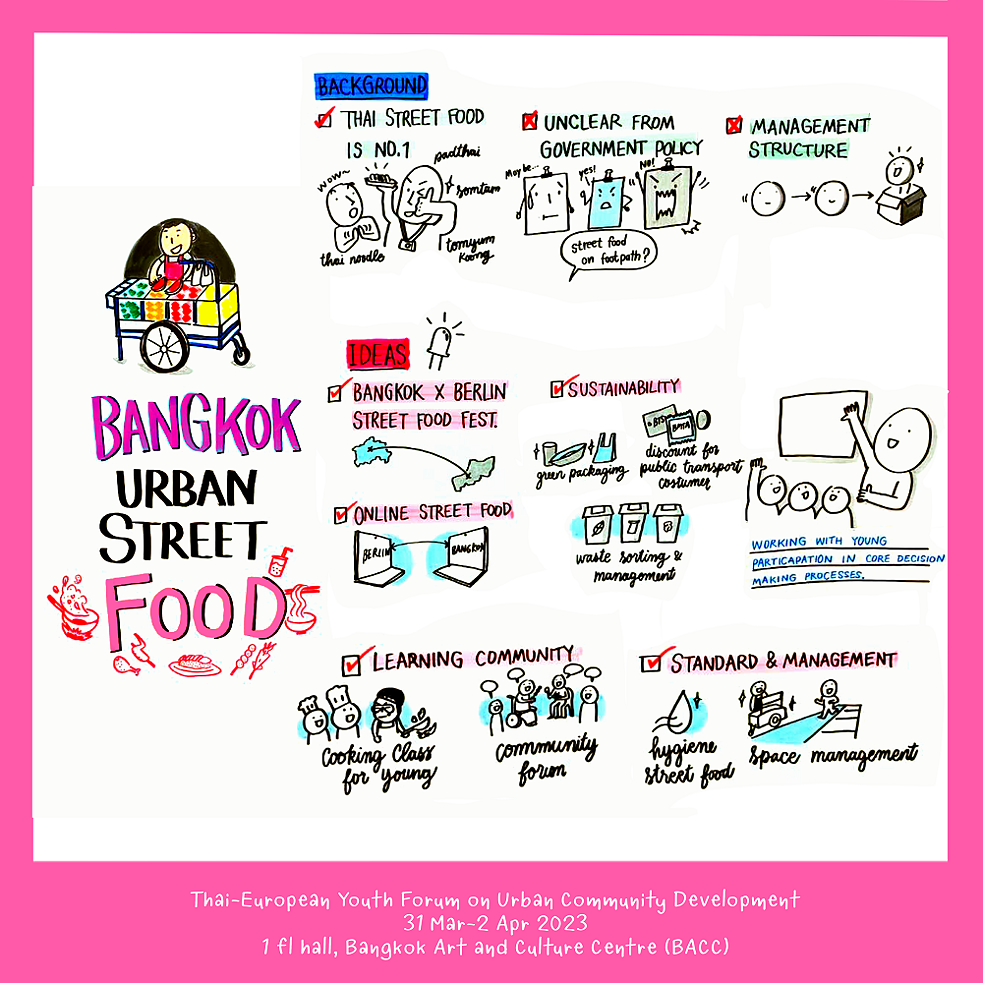 BANGKOK
URBAN
STREET
FOOD
BACKGROUND
THAI STREET FOOD
IS NO.1
wow~
padthai
somtam
thai noodle
tomyum
koong
UNCLEAR FROM
GOVERNMENT POLICY
May be...
yes!
NO!
street food
on footpath?
MANAGEMENT
STRUCTURE
IDEAS
BANGKOK X BERLIN
STREET FOOD FEST.
ONLINE STREET FOOD
BERLIN
BANGKOK
SUSTAINABILITY
green packaging
BTS
BMTA
discount for
public transport
costumer
waste sorting &
management
WORKING WITH YOUNG
PARTICAPATION IN CORE DECISION
MAKING PROCESSES.
LEARNING COMMUNITY
Cooking Class
for young
community
forum
STANDARD & MANAGEMENT
hygiene
street food
space management
Thai-European Youth Forum on Urban Community Development
31 Mar-2 Apr 2023
1 fl hall, Bangkok Art and Culture Centre (BACC)